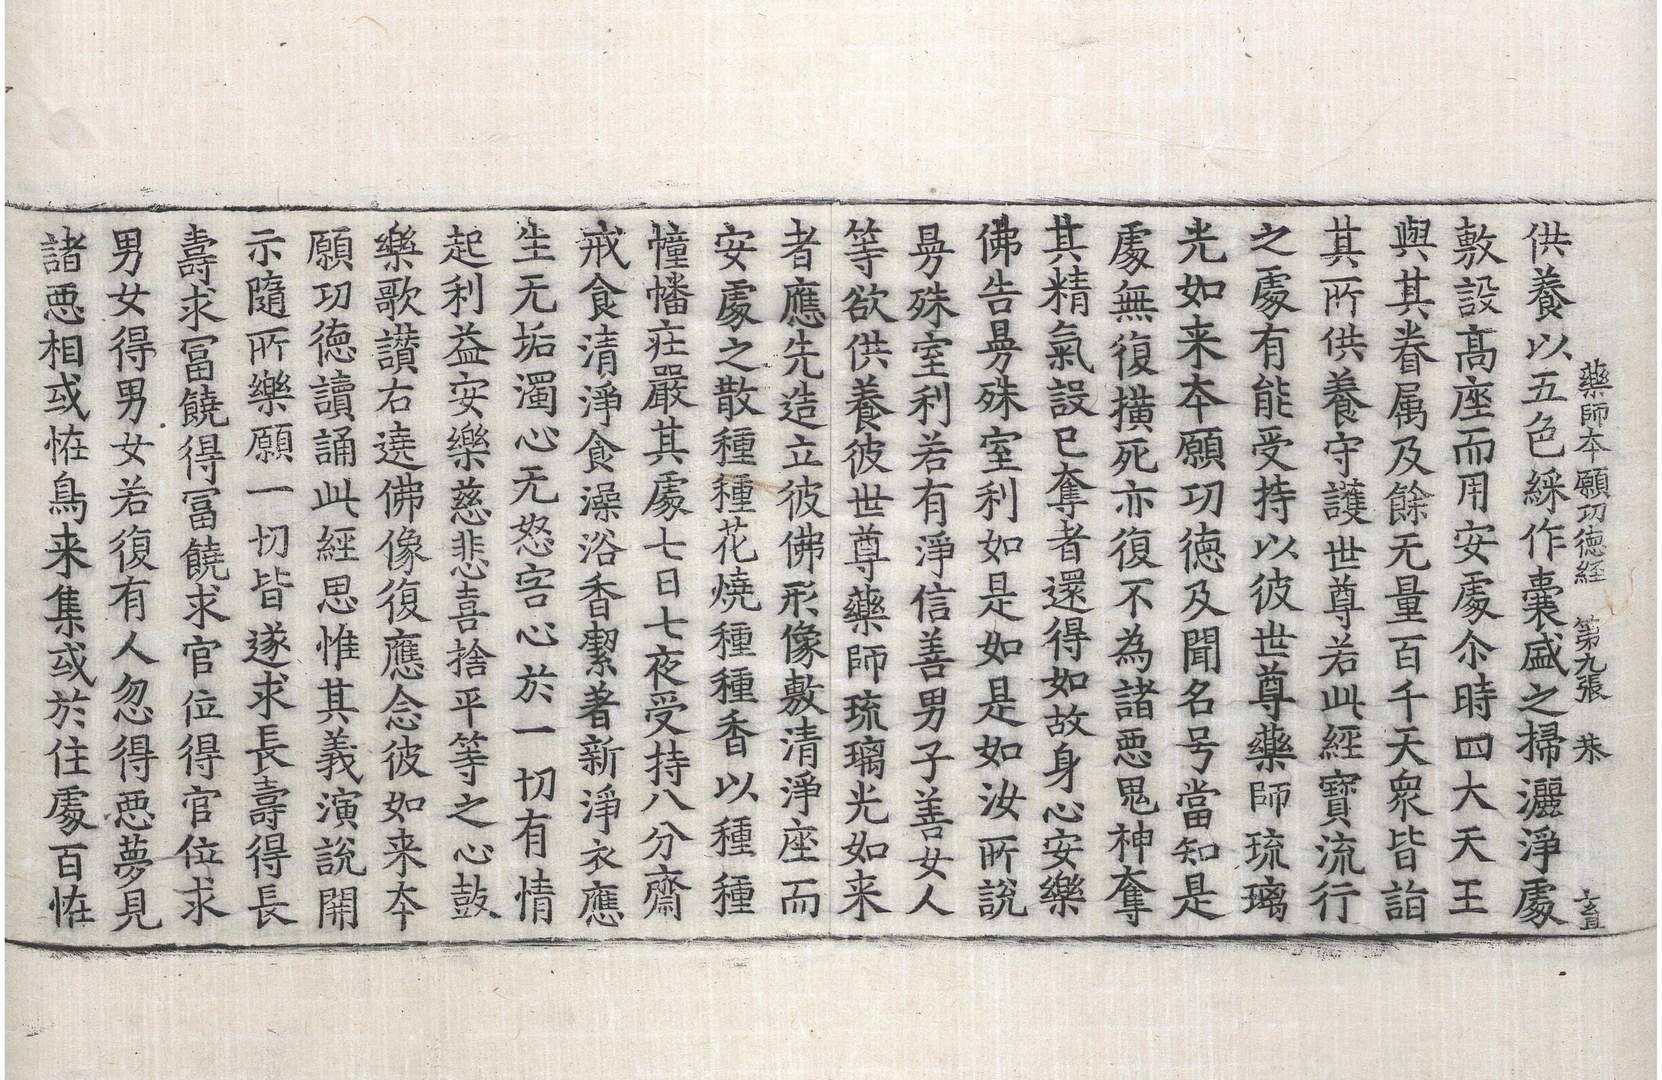 藥師本願功德経 第九張 恭
供養以五色綵作囊盛之掃灑淨處
敷設髙座而用安處尒時四大天王
與其眷属及餘无量百千天衆皆詣
其所供養守護世尊若此經寶流行
之處有能受持以彼世尊藥師琉璃
光如来夲願功德及聞名号當知是
處無復撗死亦復不為諸惡鬼神奪
其精氣設已奪者還得如故身心安樂
佛告曼殊室利如是如是如汝所說
曼殊室利若有淨信善男子善女人
等欲供養彼世尊藥師琉璃光如来
者應先造立彼佛形像敷清淨座而
安處之散種種花燒種種香以種種
幢幡疘嚴其處七日七夜受持八分齋
戒食清淨食澡浴香潔著新淨衣應
生无垢濁心无怒害心於一切有情
起利益安樂慈悲喜捨平等之心鼓
樂歌讃右遶佛像復應念彼如来夲
願功德讀誦此經思惟其義演說開
示隨所樂願一切皆遂求長壽得長
壽求冨饒得冨饒求官位得官位求
男女得男女若復有人忽得惡夢見
諸惡相或恠鳥来集或於住處百恠